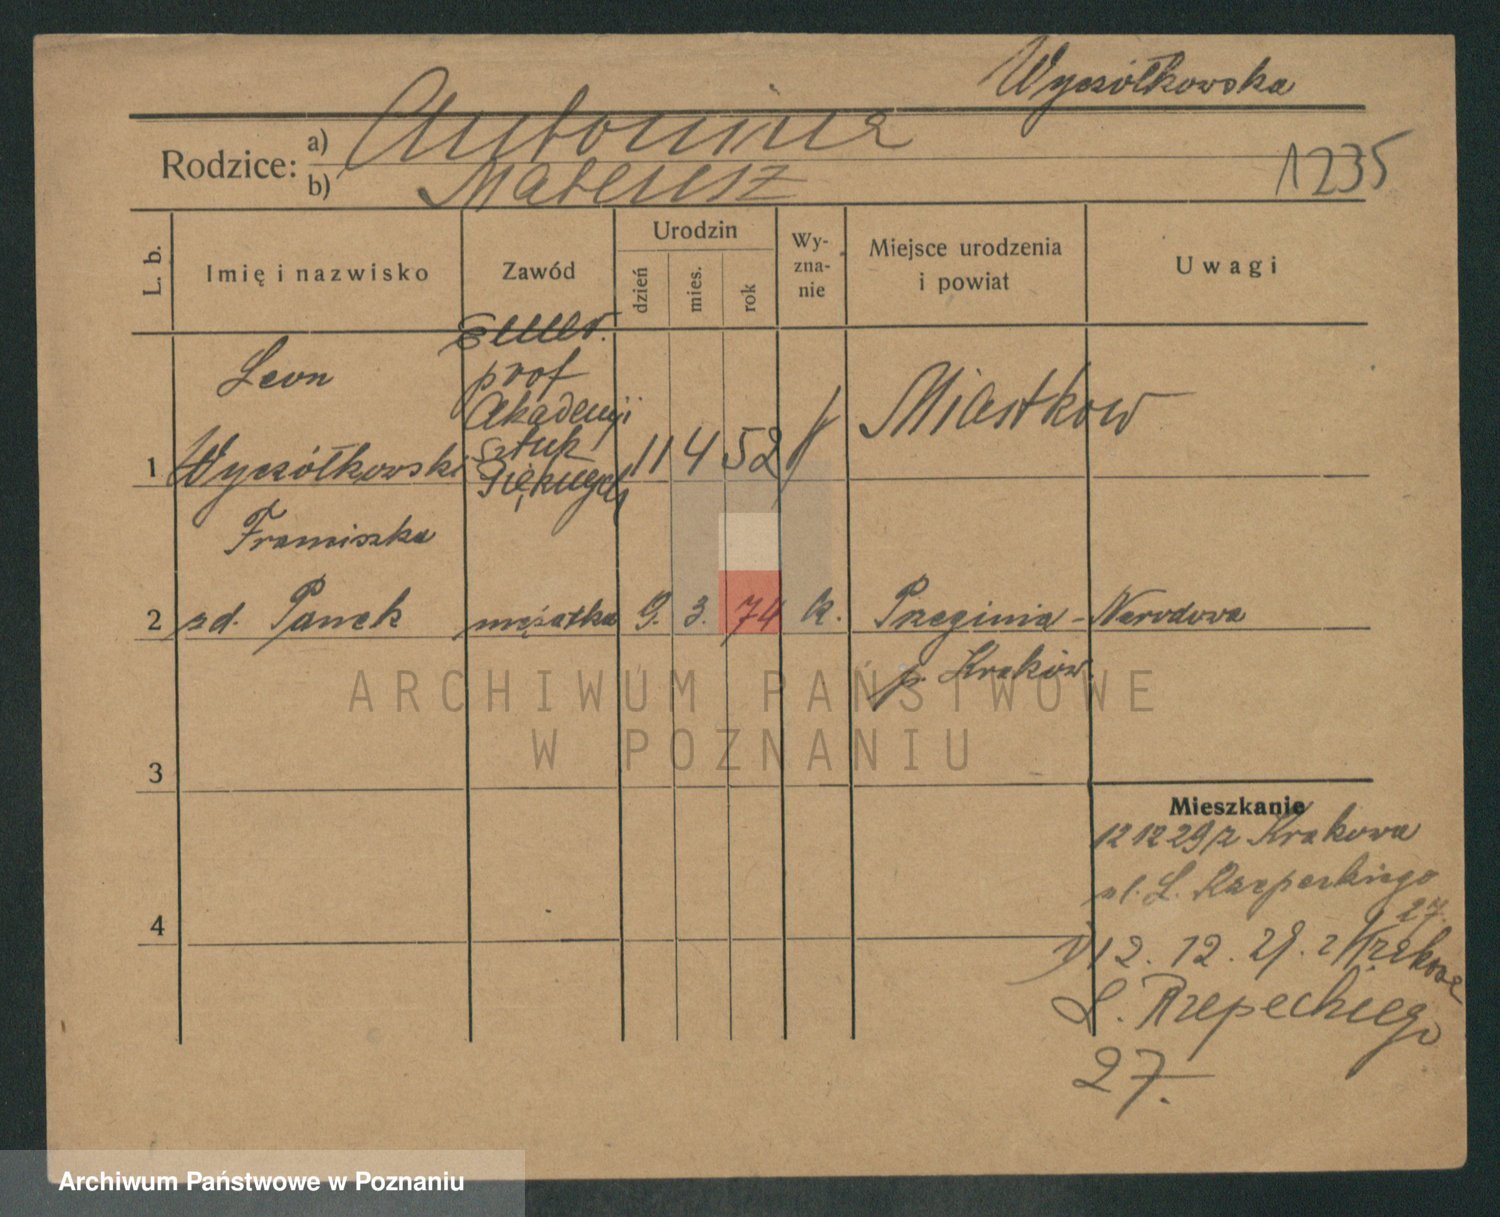 Wyczółkowska
Rodzice: a) Antonina
b) Mateusz
1235
L. b.
Imię i nazwisko
Zawód
Urodzin
dzień
mies.
rok
Wy-
zna-
nie
Miejsce urodzenia
i powiat
Uwagi
Emer.
Leon
prof
Akademji
Sztuk
Pięknych
1 Wyczółkowski 11 4 52 Miastkow
Franciszka
2 zd. Panek mężatka 9. 3. 74 k. Przeginia - Narodowa
p. Kraków.
3
4
Mieszkanie
12 12 29 z Krakowa
ul. L. Rzepeckiego
27.
1) 12. 12. 29. z Krakowa
L. Rzepeckiego
27.
ARCHIWUM PAŃSTWOWE
W POZNANIU
Archiwum Państwowe w Poznaniu